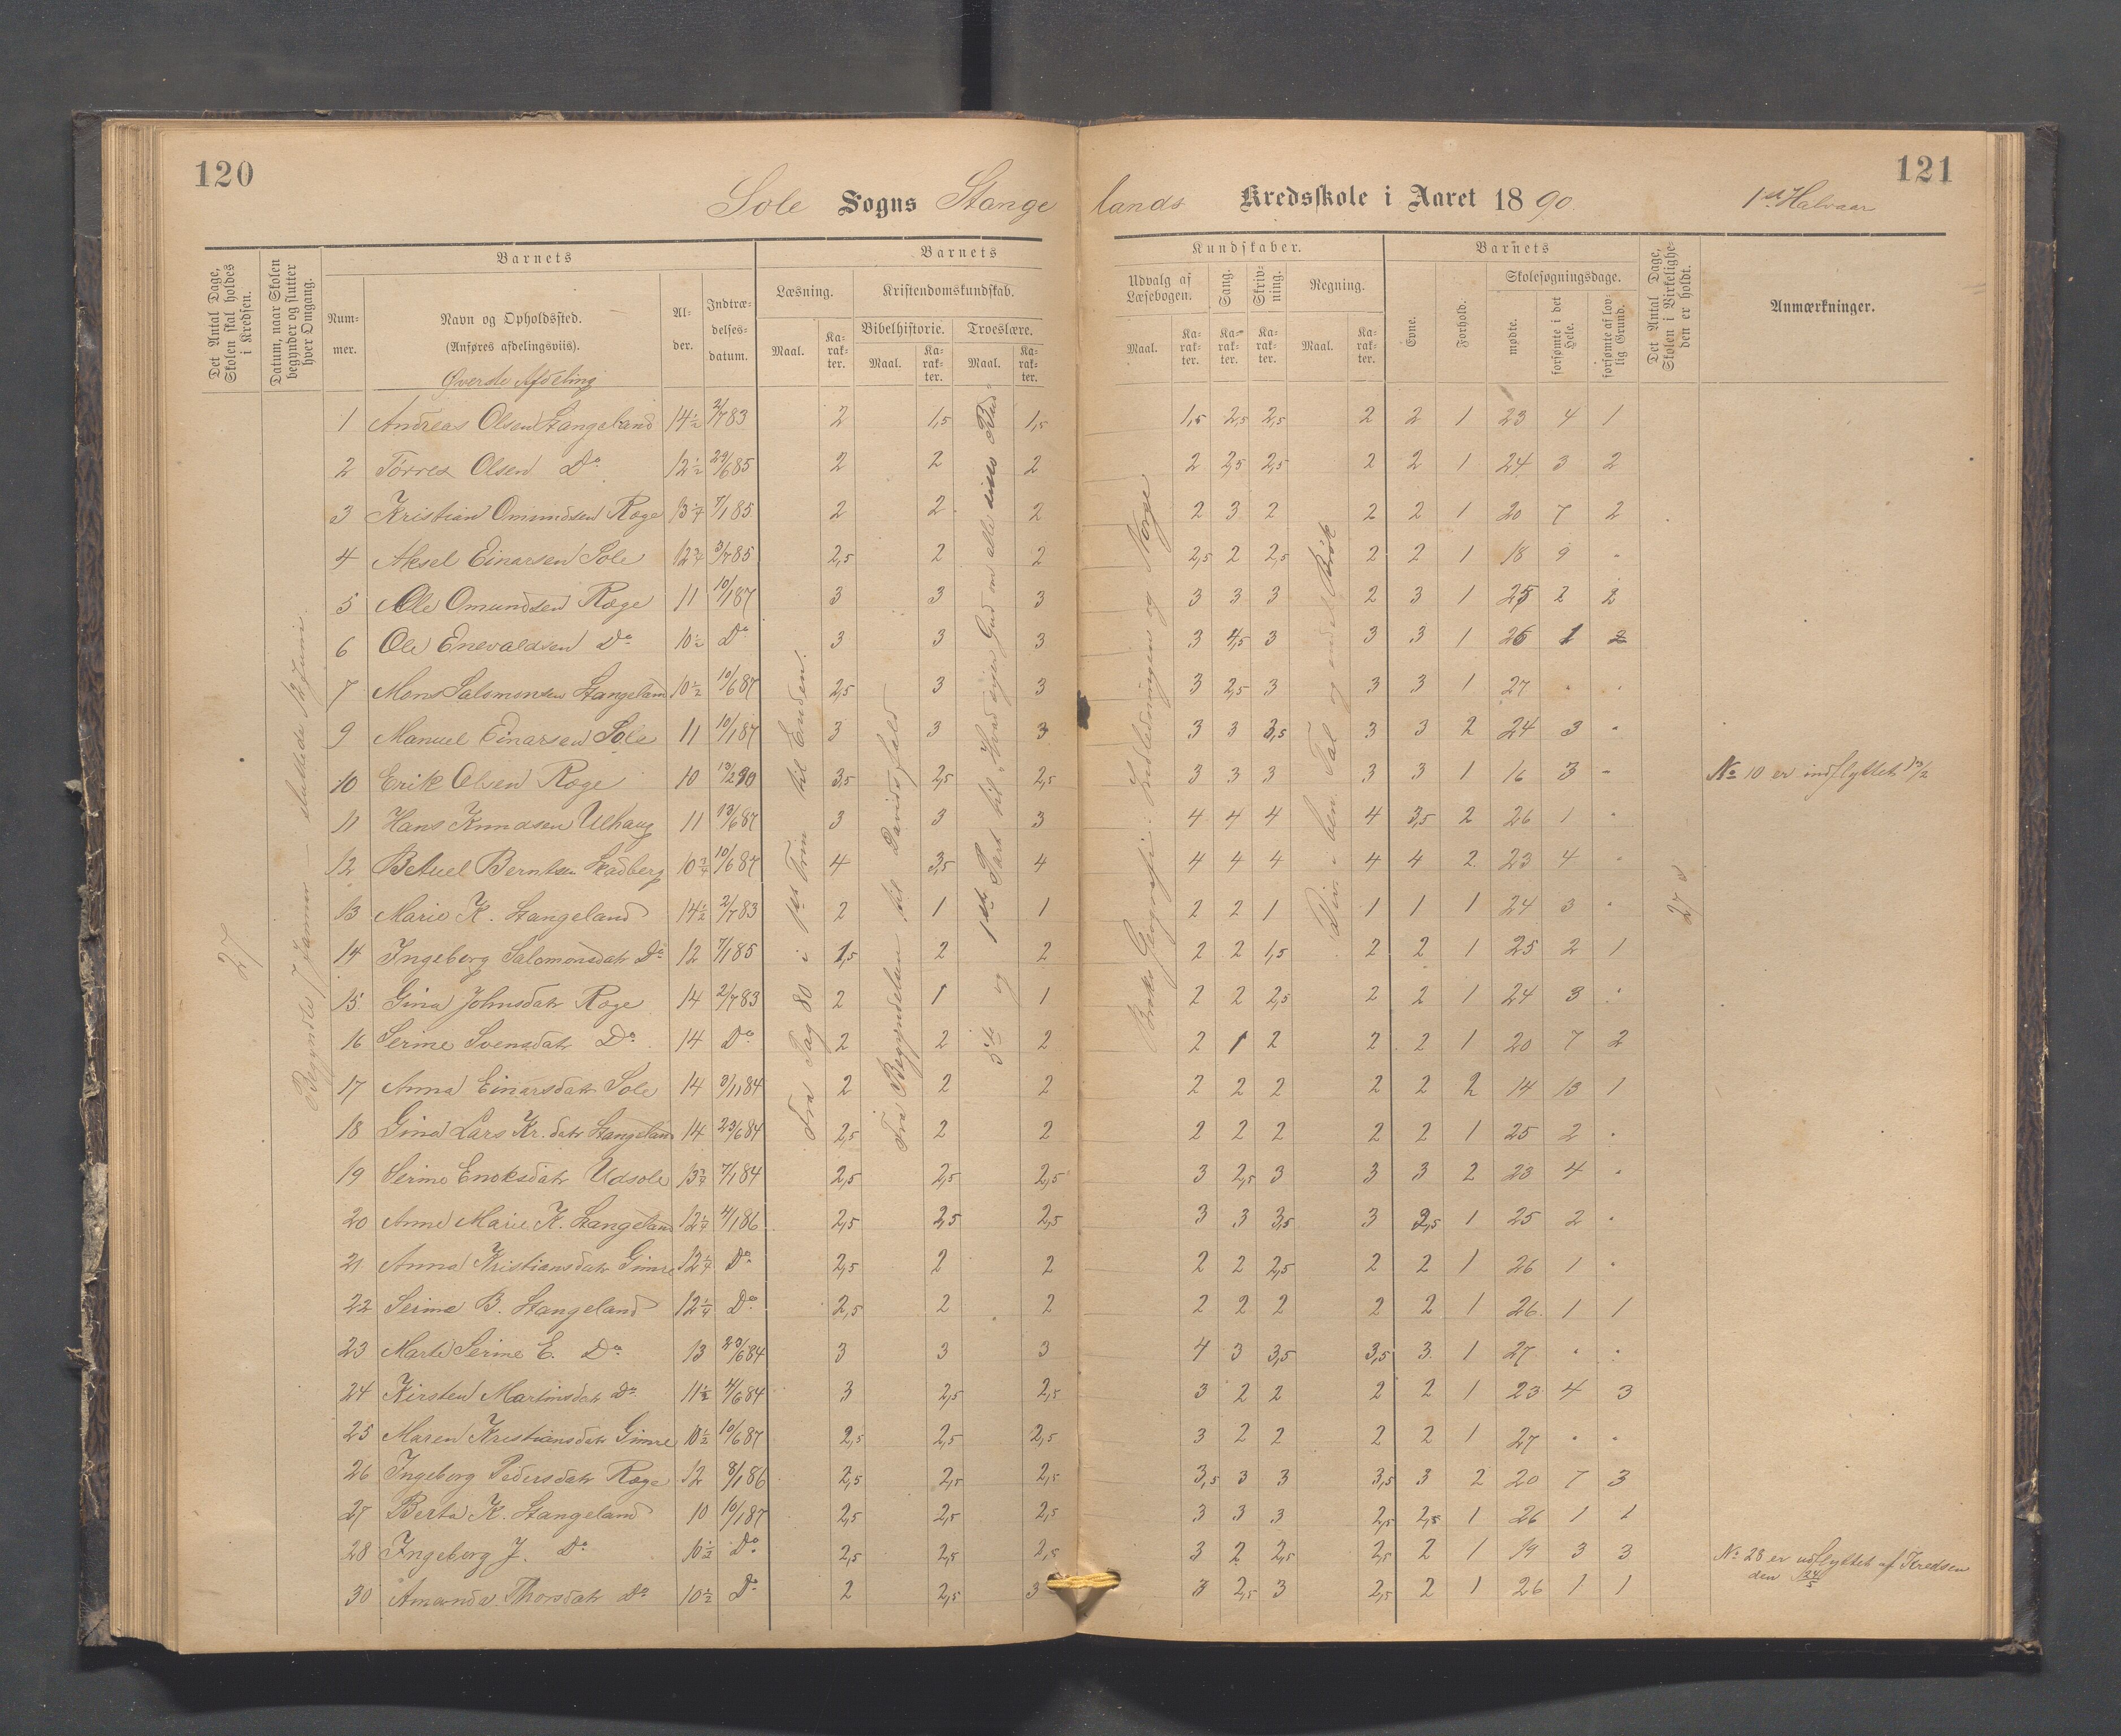 120
121
Sole Sogns Stangelands Kredsskole i Aaret 1890. 1ste Halvaar
Det Antal Dage, Skolen skal holdes i Kredsen.
Datum, naar Skolen begynder og slutter hver Omgang.
Barnets
Nummer.
Navn og Opholdssted.
(Anføres afdelingsviis).
Øverste Afdeling
Alder.
Indtrædelsesdatum.
Barnets
Kundskaber.
Læsning.
Maal.
Karakter.
Kristendomskundskab.
Bibelhistorie.
Maal.
Karakter.
Troeslære.
Maal.
Karakter.
Udvalg af Læsebogen.
Maal.
Karakter.
Sang.
Karakter.
Skrivning.
Karakter.
Regning.
Maal.
Karakter.
Barnets
Evne.
Forhold.
Skolesøgningsdage.
mødte.
forsømte i det Hele.
forsømte af lovlig Grund.
Det Antal Dage, Skolen i Virkeligheden er holdt.
Anmærkninger.
27
Begyndte 7 Januar sluttede 12 Juni
Fra Pag 80 i 1ste Trin til Enden.
Fra Begyndelsen til Davids fald
5te og 1ste Part til "Hvad siger Gud om alle disse Bud
Geografi: Indledningen og Norge
27
1 Andreas Olsen Stangeland 14 1/2 2/7 83 2 1,5 1,5 1,5 2,5 2,5 2 2 1 23 4 1
2 Tørres Olsen Do 12 1/2 29/6 85 2 2 2 2 2,5 2,5 2 2 1 24 3 2
3 Kristian Omundsen Røge 13 1/4 7/1 85 2 2 2 2 3 2 2 2 1 20 7 2
4 Aksel Einarsen Sole 12 3/4 3/7 85 2,5 2 2 2,5 2 2,5 2 2 1 18 9 "
5 Ole Omundsen Røge 11 10/1 87 3 3 3 3 3 3 2 3 1 25 2 2
6 Ole Enevaldsen Do 10 1/2 Do 3 3 3 3 4,5 3 3 3 1 26 1 2
7 Mons Salomonsen Stangeland 10 1/2 10/6 87 2,5 3 3 3 2,5 3 3 3 1 27 " "
9 Manuel Einarsen Sole 11 10/1 87 3 3 3 3 3 3,5 3 3 2 24 3 "
10 Erik Olsen Røge 10 13/2 90 3,5 2,5 2,5 3 3 3 3 3 1 16 3 " No 10 er indflyttet 13/2
11 Hans Knudsen Ulhaug 11 13/6 87 3 3 3 4 4 4 4 3,5 2 26 1 "
12 Betuel Berntsen Skadberg 10 3/4 10/6 87 4 3,5 4 4 4 4 4 4 2 23 4 "
13 Marie K. Stangeland 14 1/2 2/7 83 2 1 1 2 2 1 1 1 1 24 3 "
14 Ingeborg Salomonsdatr Do 12 7/1 85 1,5 2 2 2 2 1,5 2 2 1 25 2 1
15 Gina Johnsdatr Røge 14 2/7 83 2 1 1 2 2 2,5 2 2 1 24 3 "
16 Serine Svensdatr Do 14 Do 2 2 2 2 1 2 2 2 1 20 7 2
17 Anna Einarsdatr Sole 14 3/11 84 2 2 2 2 2 2 2 2 2 14 13 1
18 Gina Lars Kr. datr Stangeland 14 23/6 84 2,5 2 2 2 2 2 2 2 1 25 2 "
19 Serine Enoksdatr Udsole 13 3/4 7/1 84 2,5 2,5 2,5 3 2,5 3 3 3 2 23 4 "
20 Anne Marie K. Stangeland 12 1/4 4/1 86 2,5 2,5 2,5 3 3 3,5 3 2,5 1 25 2 "
21 Anna Kristiansdatr Gimre 12 1/4 Do 2,5 2 2 2 2 2,5 2 2 1 26 1 "
22 Serine B. Stangeland 12 1/4 Do 2,5 2 2 2 2 2 2 2 1 26 1 1
23 Marte Serine E. Do 13 23/6 84 3 3 3 4 3 3,5 3,5 3 1 27 " "
24 Kirsten Martinsdatr Do 11 1/2 4/6 84 3 2,5 2,5 3 2 2 2 2 1 23 4 3
25 Maren Kristiansdatr Gimre 10 1/2 10/6 87 2,5 2,5 2,5 3 2 2 2 2 1 27 " "
26 Ingeborg Pedersdatr Røge 12 8/1 86 2,5 2,5 2,5 3,5 3 3 3,5 3 2 20 7 3
27 Berta K. Stangeland 10 10/1 87 2,5 2,5 2,5 3 3 3 2,5 2,5 1 26 1 1
28 Ingeborg J. Do 10 1/2 Do 2,5 2,5 2,5 3 2 2,5 2,5 2 1 19 3 3 No 28 er udflyttet af Kredsen
den 24/5
30 Amanda Thorsdatr Do 10 1/2 Do 2 2,5 3 3 2,5 3 2,5 2 1 26 1 1